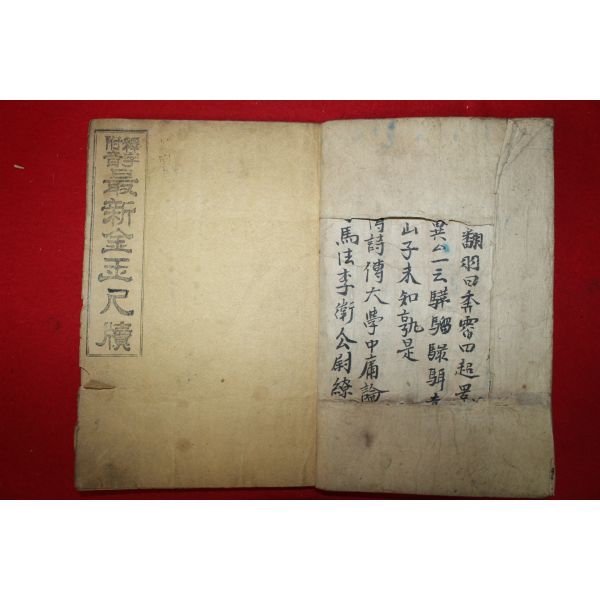 釋字
附音
最新金玉尺牘
翻羽曰奔霄曰超
異公一云驊騮騄駬
山子未知孰是
詩傳大學中庸論
馬法李衛公尉繚